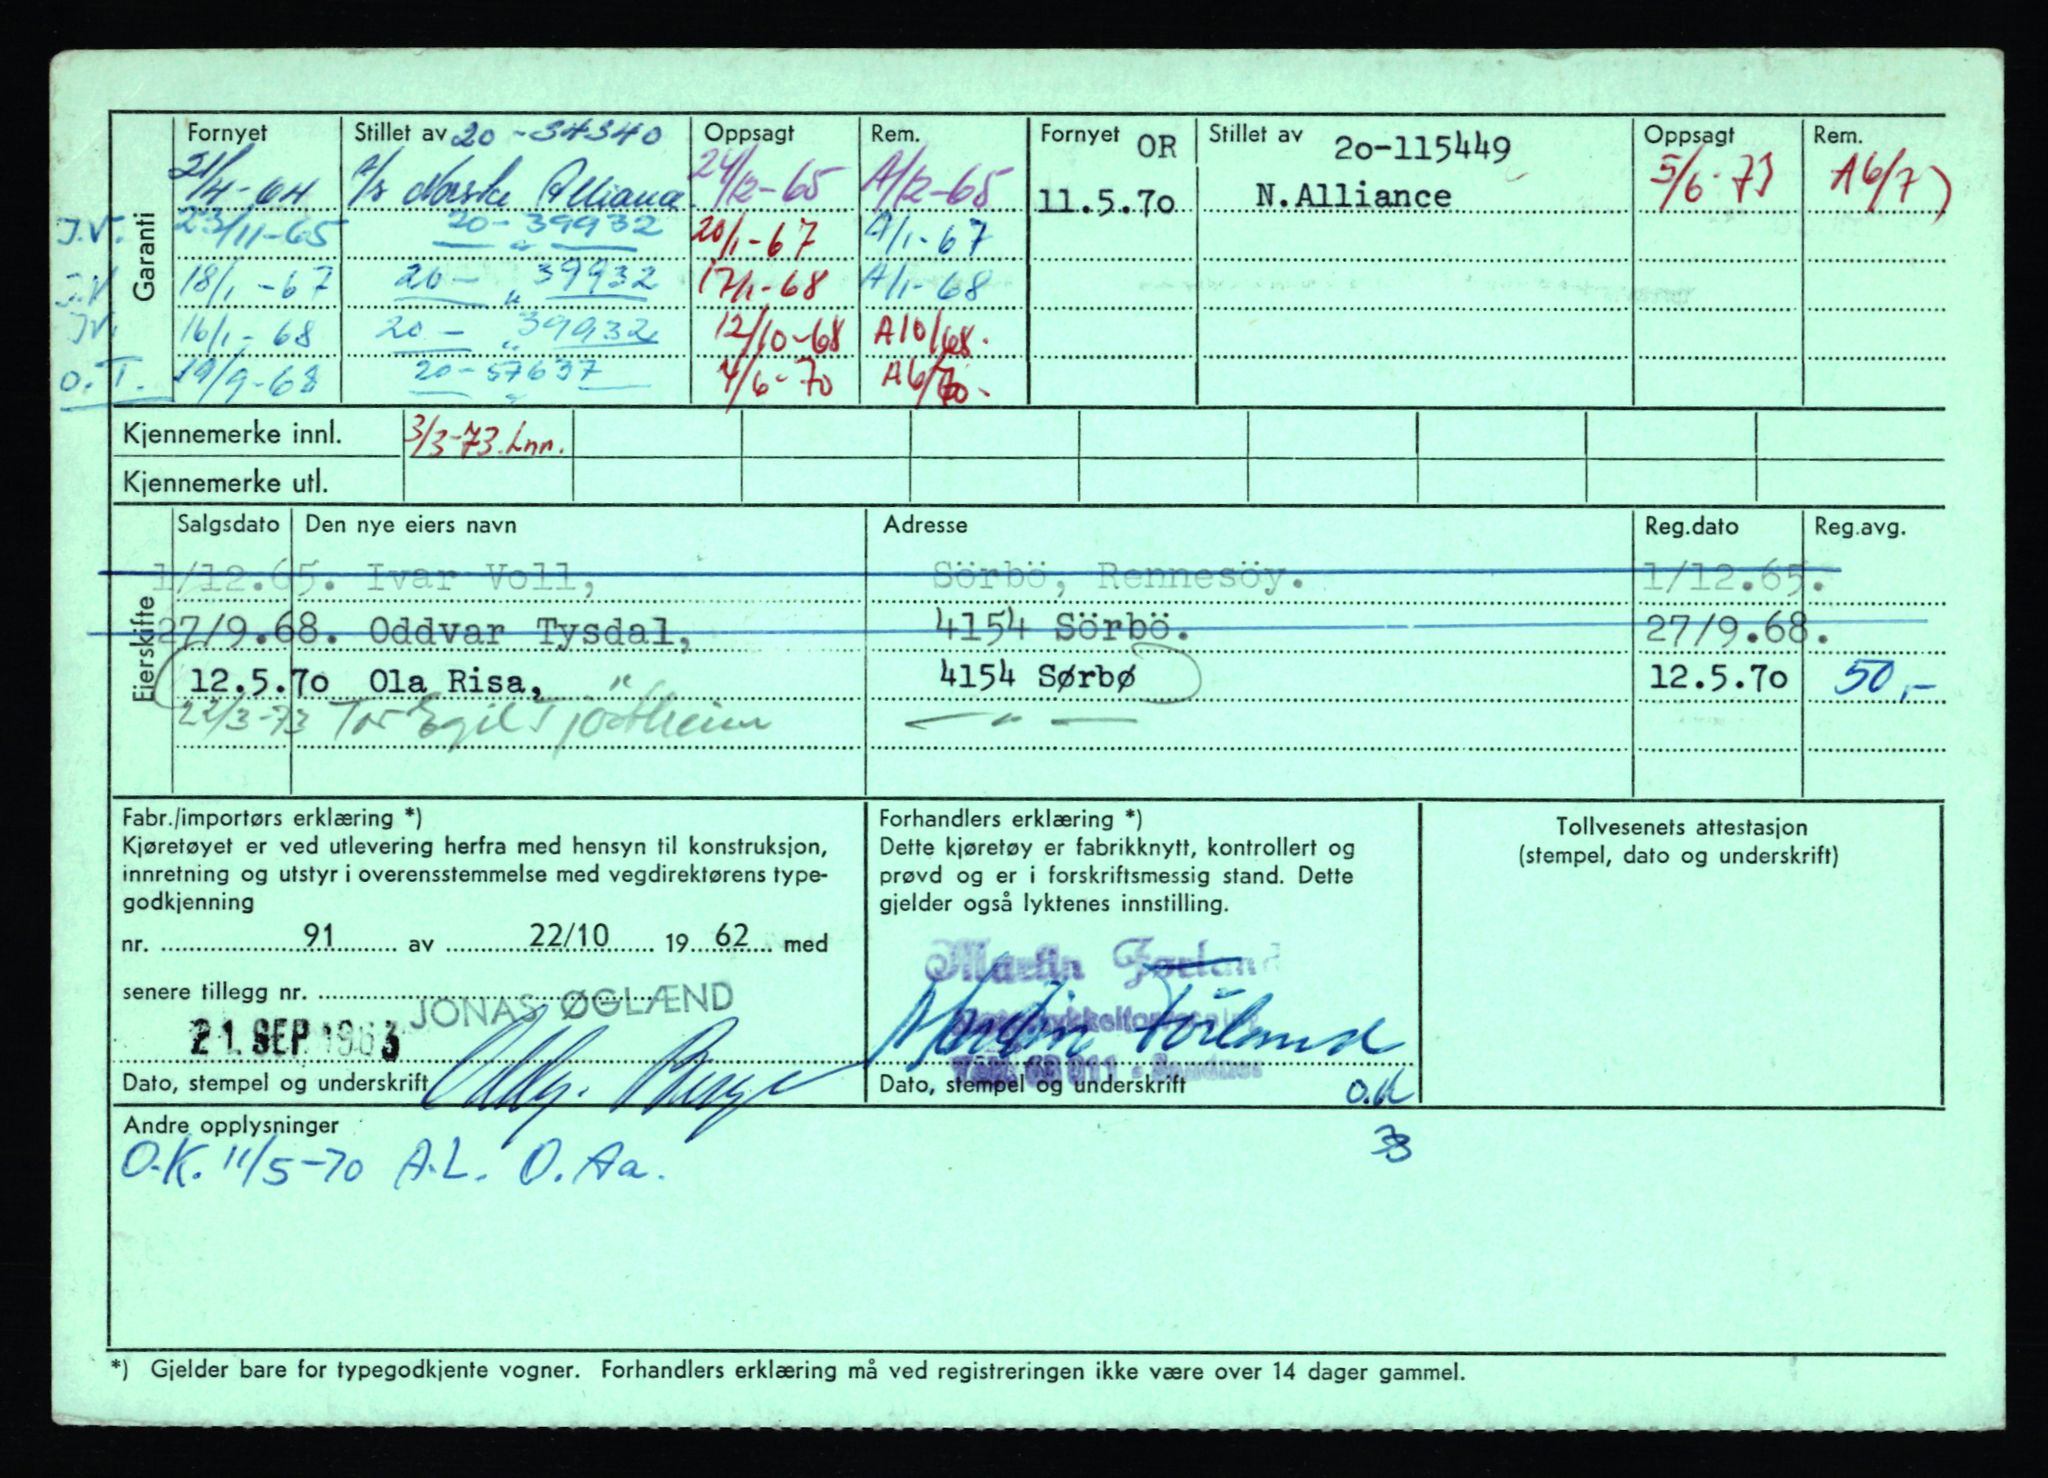 Garanti
Fornyet Stillet av 20-34340 Oppsagt Rem. Fornyet OR Stillet av 20-115449 Oppsagt Rem.
21/4-64 A/S Norske Alliance 24/12-65 A/12-65 11.5.70 N.Alliance 5/6-73 A6/7)
J.V. 23/11-65 20-39932 20/1-67 A/1-67
J.V. 18/1-67 20- " 39932 17/1-68 A/1-68
J.V. 16/1-68 20- " 39932 12/10-68 A10/68.
O.T. 19/9-68 20-57637 4/6-70 A6/70-
Kjennemerke innl. 3/3-73. Lnn.
Kjennemerke utl.
Eierskifte
Salgsdato Den nye eiers navn Adresse Reg.dato Reg.avg.
1/12.65. Ivar Voll, Sörbö, Rennesöy. 1/12.65.
27/9.68. Oddvar Tysdal, 4154 Sörbö. 27/9.68.
12.5.70 Ola Risa, 4154 Sørbø 12.5.70 50,-
22/3-73 Tor Egil Tjöstheim — " —
Fabr./importørs erklæring *)
Kjøretøyet er ved utlevering herfra med hensyn til konstruksjon,
innretning og utstyr i overensstemmelse med vegdirektørens type-
godkjenning
nr. 91 av 22/10 19 62 med
senere tillegg nr.
JONAS ØGLÆND
21. SEP 1963
Dato, stempel og underskrift
Forhandlers erklæring *)
Dette kjøretøy er fabrikknytt, kontrollert og
prøvd og er i forskriftsmessig stand. Dette
gjelder også lyktenes innstilling.
Martin Førland
Martin Förland
Dato, stempel og underskrift O.K
Tollvesenets attestasjon
(stempel, dato og underskrift)
Andre opplysninger
O.K. 11/5-70 A.L. O. Aa.
*) Gjelder bare for typegodkjente vogner. Forhandlers erklæring må ved registreringen ikke være over 14 dager gammel.